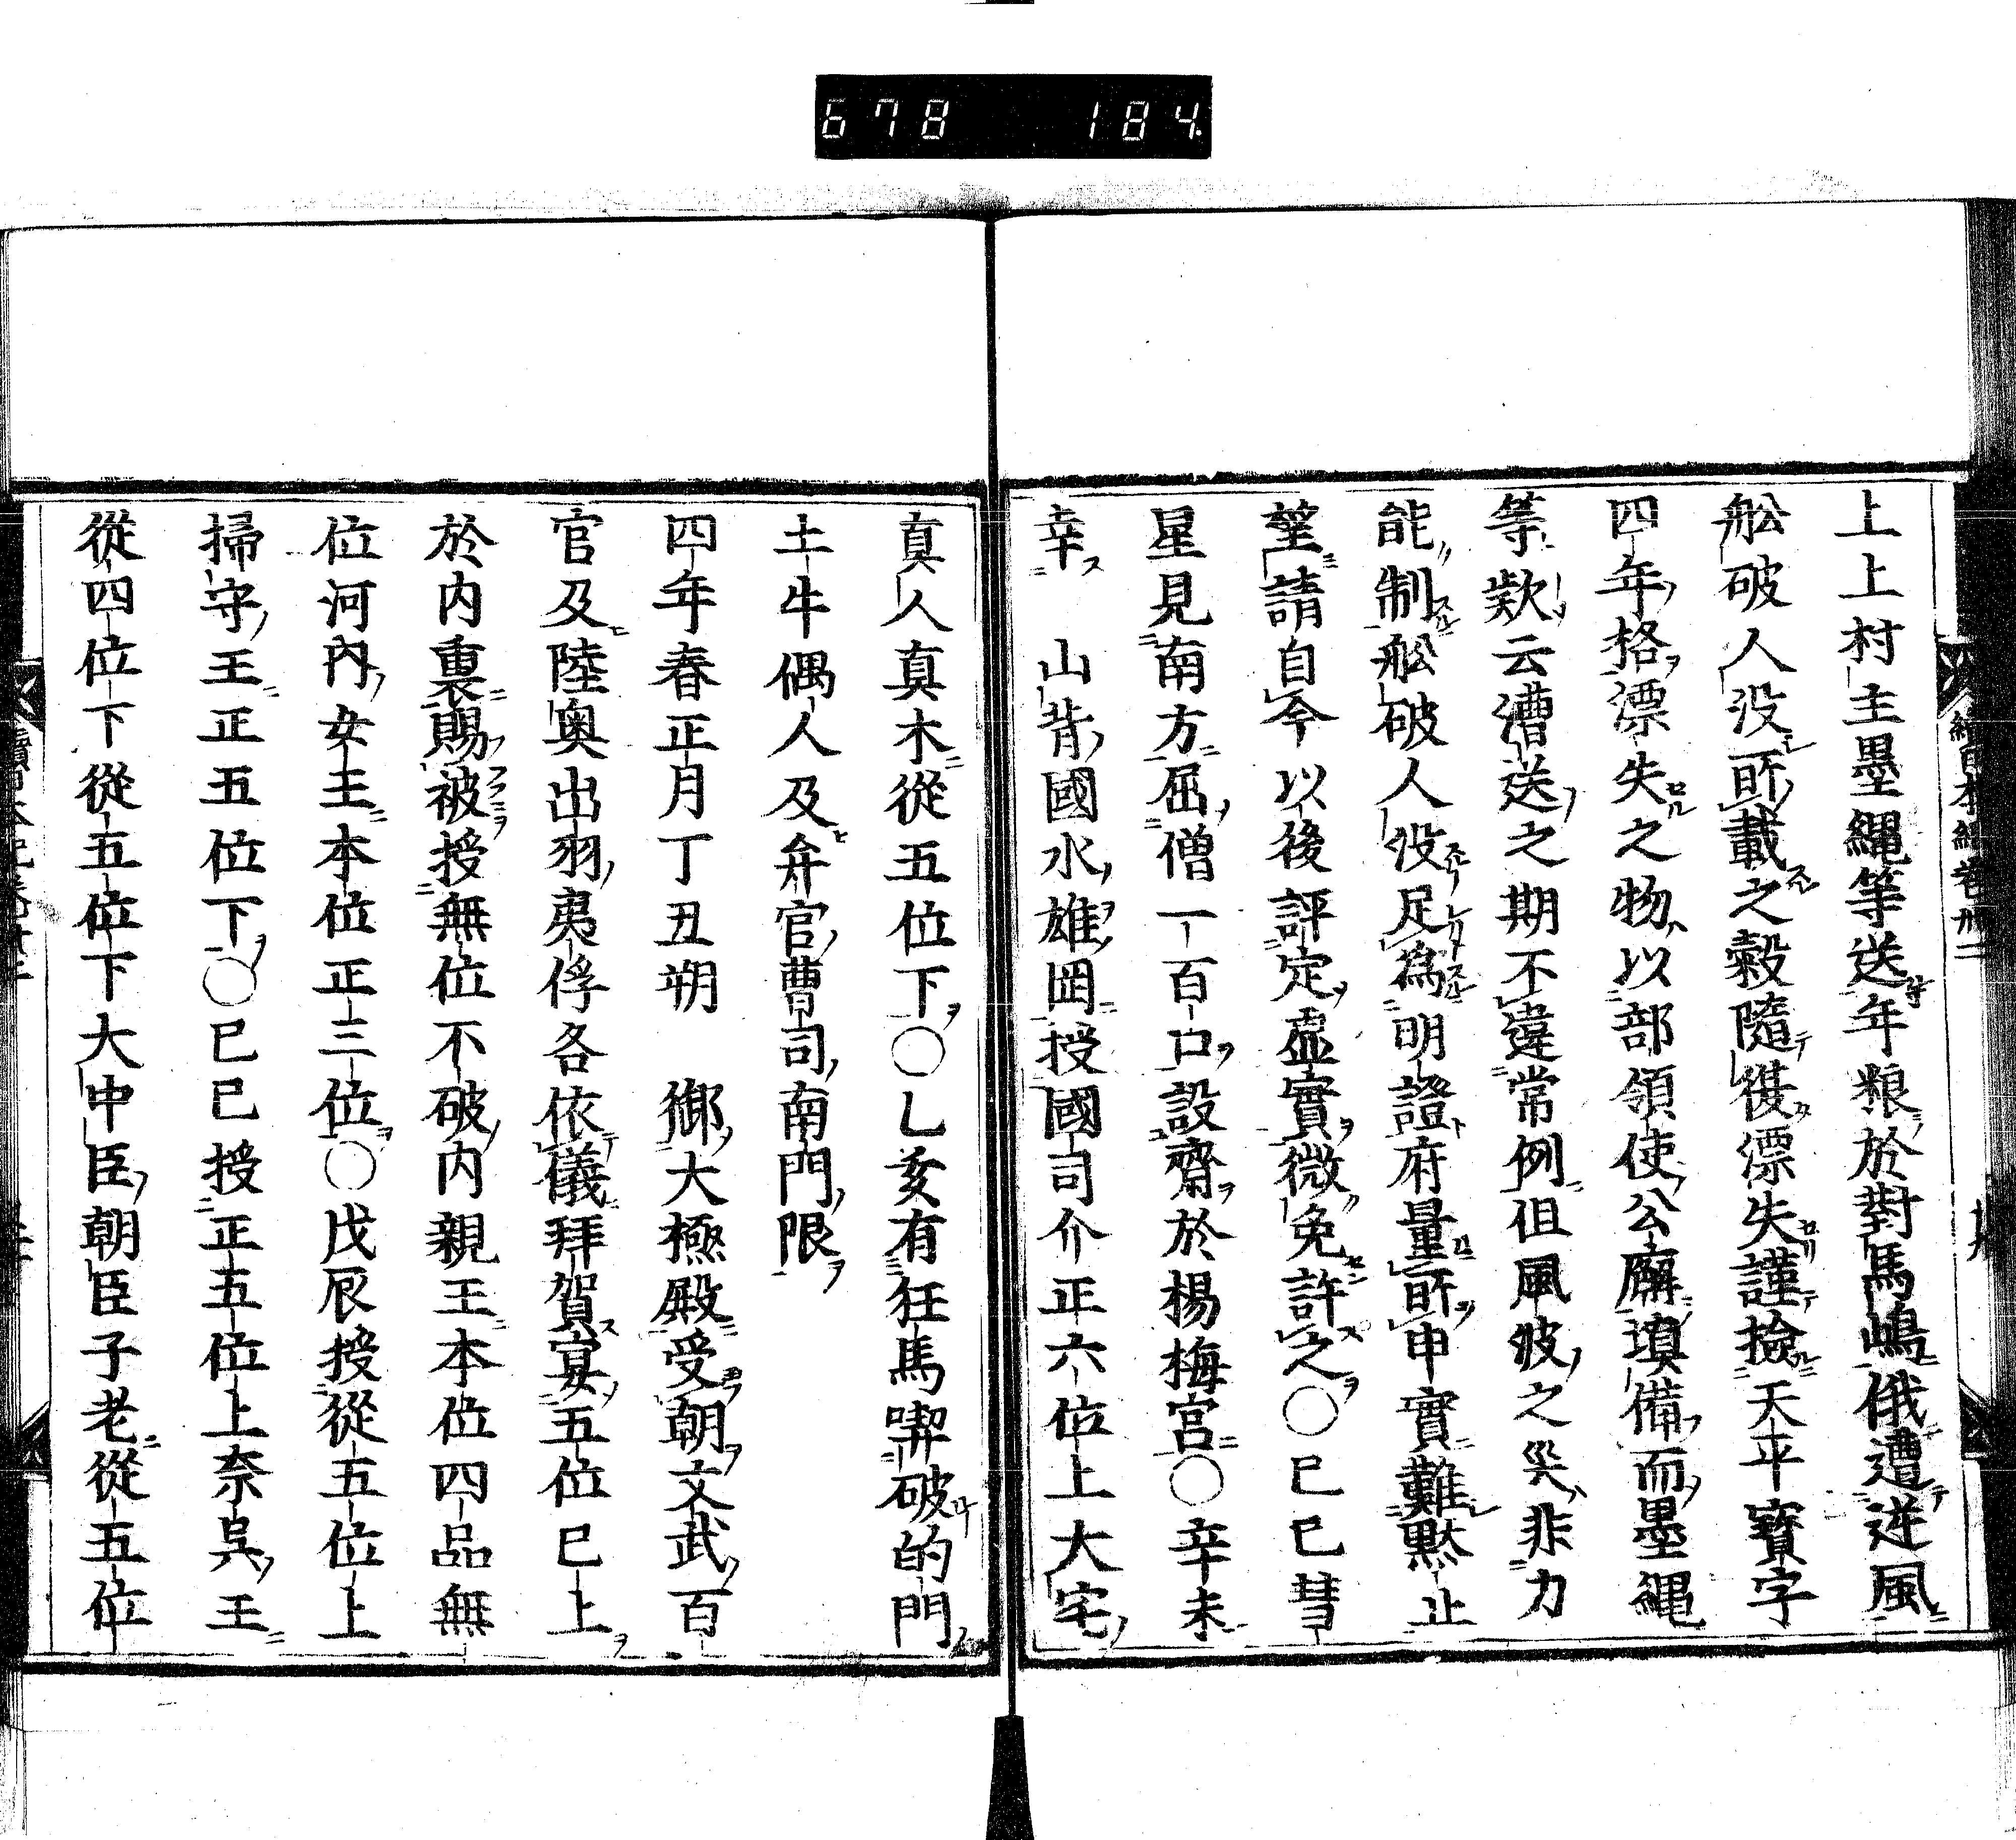 678 184.
上上村主墨繩等送年粮於對馬嶋俄遭逆風
舩破人没所載之穀隨復漂失謹撿天平寶字
四年格漂失之物以部領使公廨塡備而墨繩
等欵云漕送之期不違常例但風波之災非力
能制舩破人没足爲明證府量所申實難黙止
望請自今以後評定虛實徴免許之〇已已彗
星見南方屈僧一百口設齋於楊梅宮〇辛未
幸 山背國水雄岡授國司介正六位上大宅
真人真木從五位下〇乙亥有狂馬喫破的門
土牛偶人及弁官曹司南門限
四年春正月丁丑朔 御大極殿受朝文武百
官及陸奥出羽夷俘各依儀拜賀宴五位已上
於内裏賜被授無位不破内親王本位四品無
位河内女王本位正三位〇戊辰授從五位上
掃守王正五位下〇已已授正五位上奈呉王
從四位下從五位下大中臣朝臣子老從五位